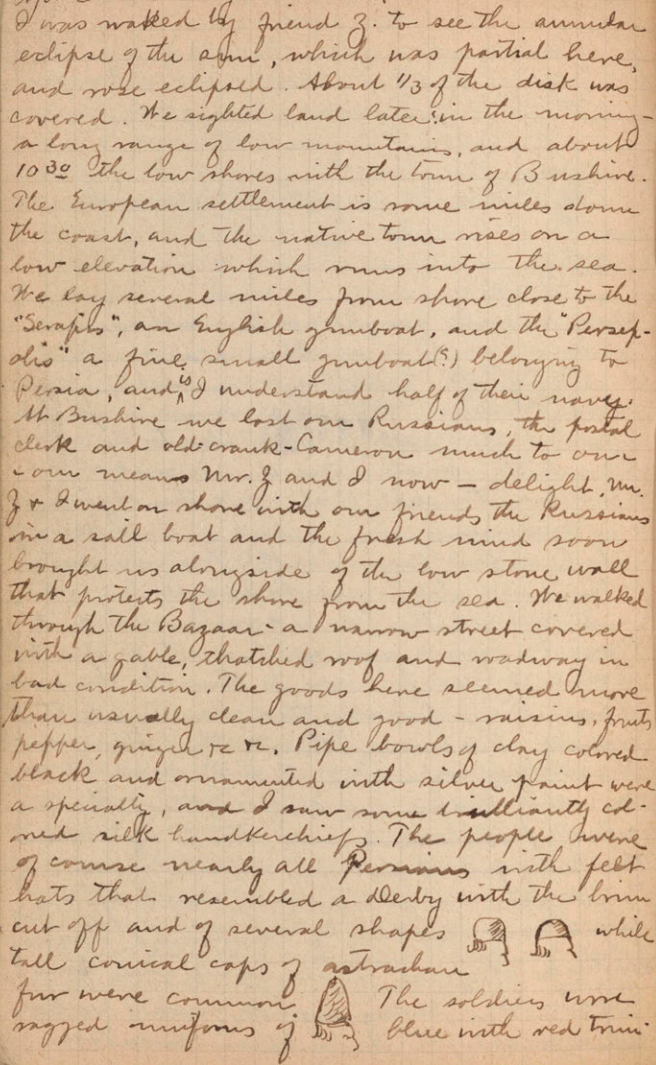 I was waked by friend Z. to see the annular
eclipse of the sun, which was partial here,
and rose eclipsed. About 1/3 of the disk was
covered. We sighted land later in the morning -
a long range of low mountains, and about
10 30 the low shores with the town of Bushire.
The European settlement is some miles down
the coast, and the native town rises on a
low elevation which runs into the sea.
We lay several miles from shore close to the
"Serapis", an English gunboat, and the "Persep-
olis" a fine, small gunboat(?) belonging to
Persia, and is I understand half of their navy.
At Bushire we lost our Russians, the postal
clerk and old-crank-Cameron much to our
- our means Mr. Z and I now - delight. Mr.
Z & I went on shore with our friends the Russians
in a sail boat and the fresh wind soon
brought us alongside of the low stone wall
that protects the shore from the sea. We walked
through the Bazaar - a narrow street covered
with a gable, thatched roof and roadway in
bad condition. The goods here seemed more
than usually clean and good - raisins, fruits
pepper, ginger &c &c. Pipe bowls of clay colored
black and ornamented with silver paint were
a specialty, and I saw some brilliantly col-
ored silk handkerchiefs. The people were
of course nearly all Persians with felt
hats that resembled a Derby with the brim
cut off and of several shapes while
tall conical caps of astrachan
fur were common The soldiers wore
ragged uniforms of blue with red trim-